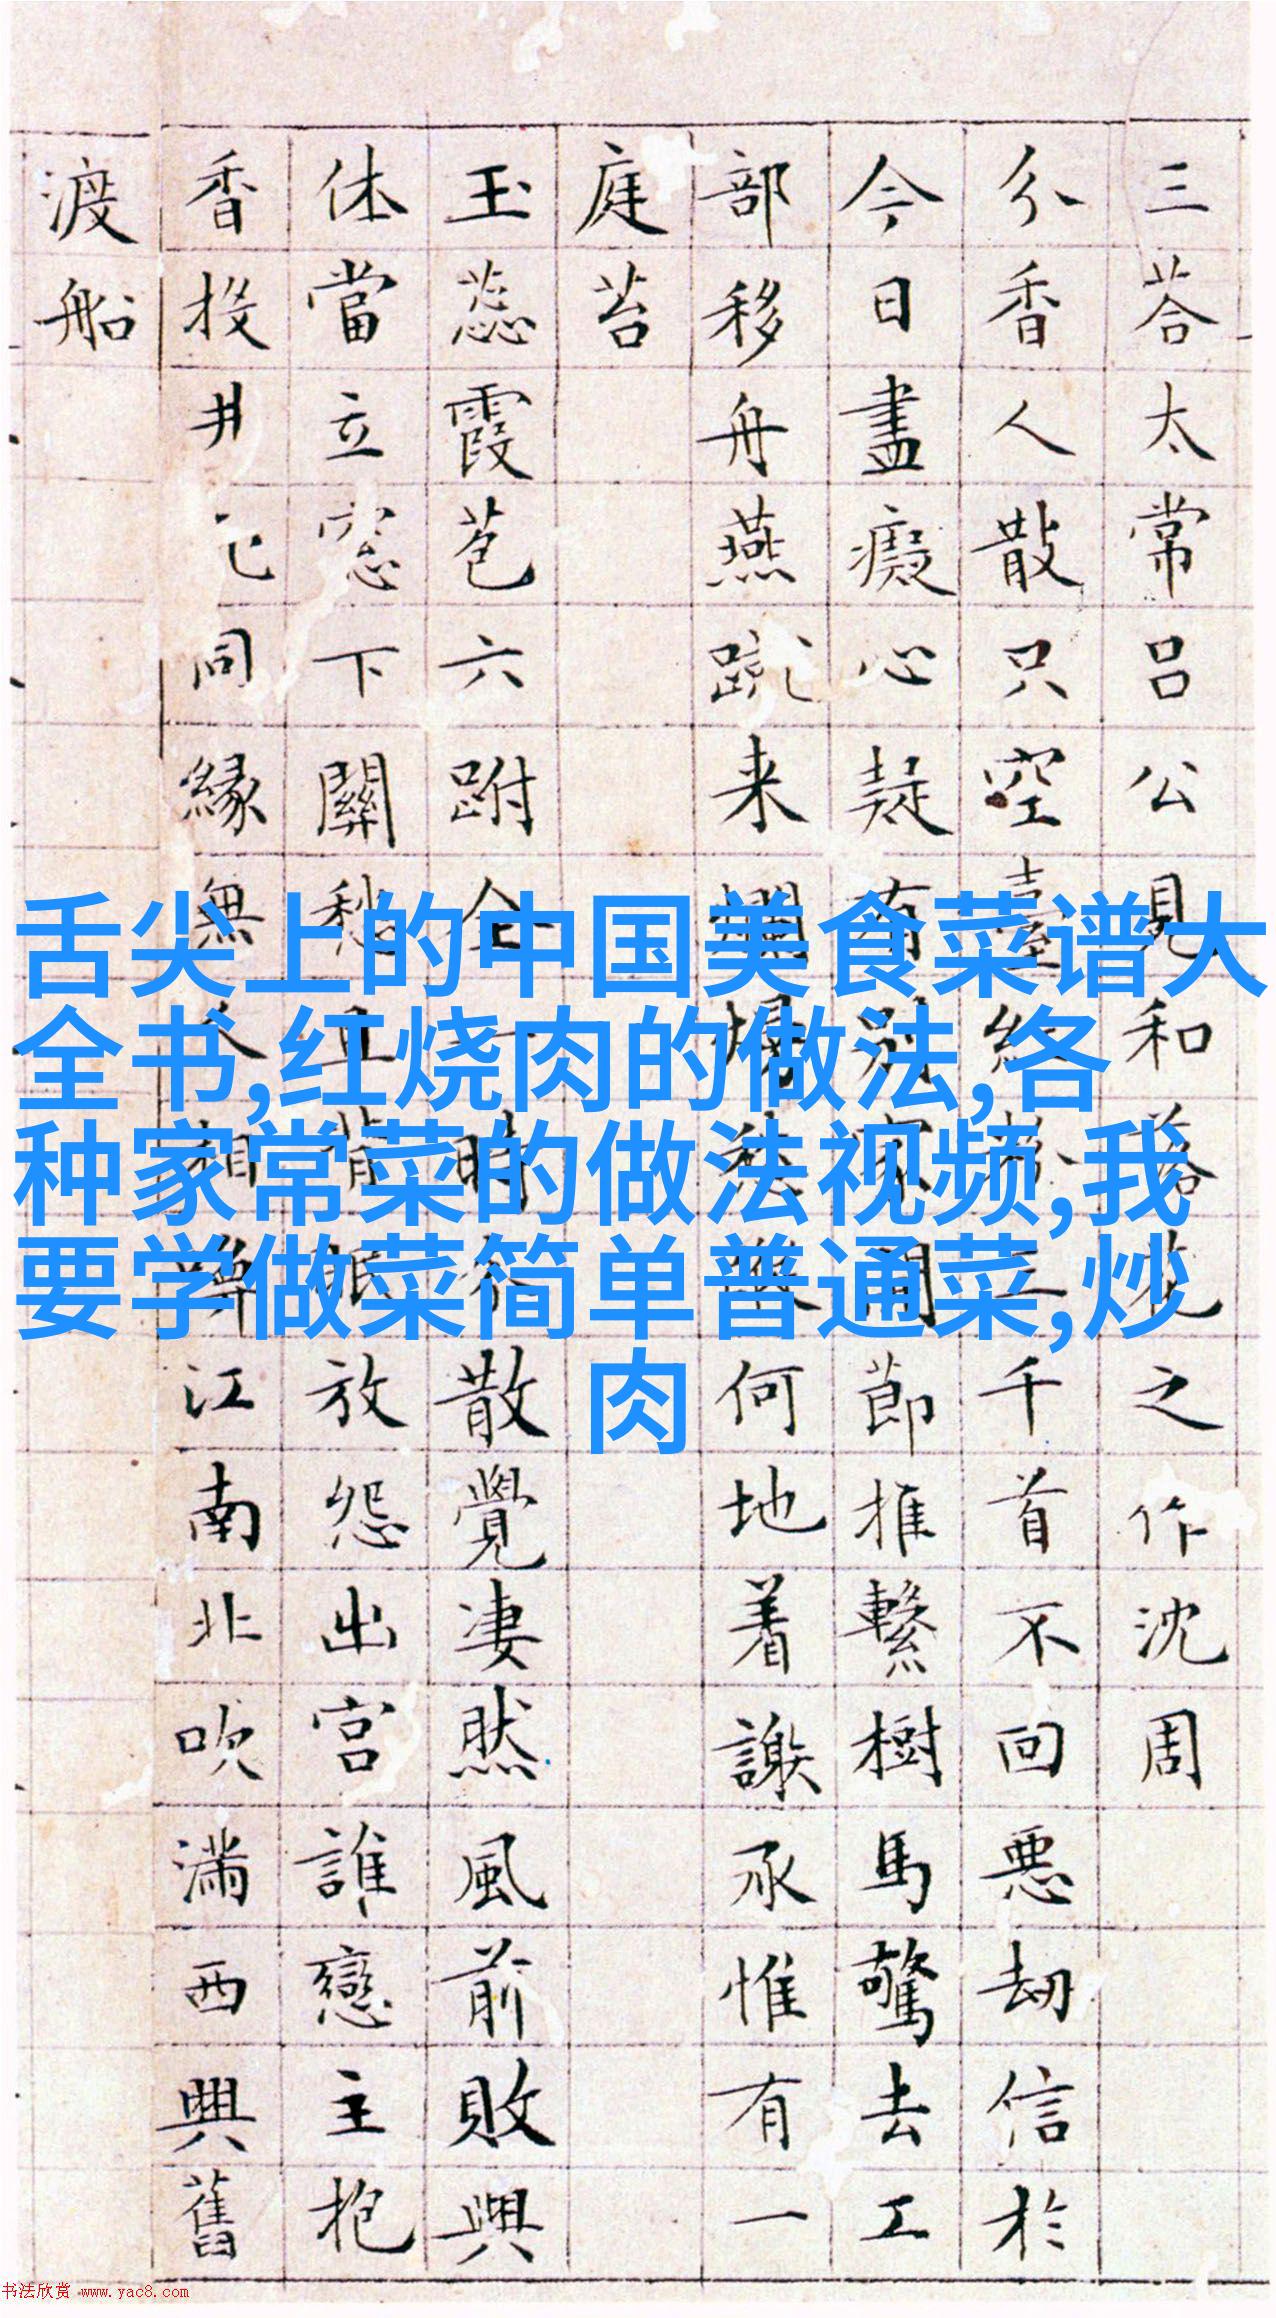 三荅太常吕公見和落花之作沈周
分香人散只空臺三千首不回悪劫信於
今日盡癡心疑有別家開節推繫樹馬驚去工
部移舟燕蹴来爛熳愁踪何地着謝承惟有一
庭苔
玉蕊霞苞六跗全一時分散覺凄然風前敗興
休當立窓下關愁且背眠放怨出宫誰戀主抱
香投井同縁無人相江南北吹满西興舊
渡船
舌尖上的中国美食菜谱大
全书,红烧肉的做法,各
种家常菜的做法视频,我
要学做菜简单普通菜,炒
肉
书法欣赏 www.yac8.com